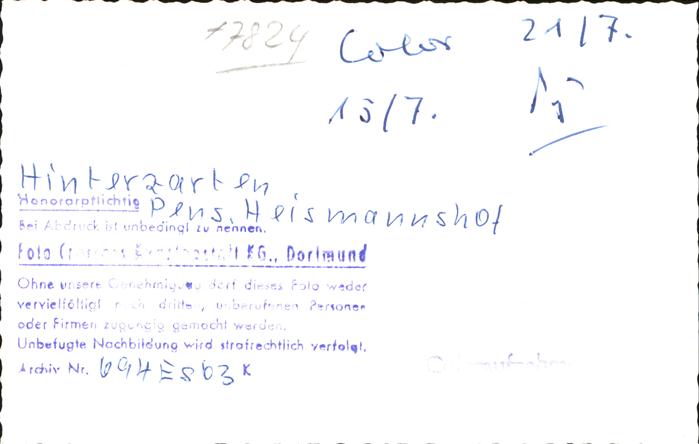 17824 Color 21/7.
15/7.
Hinterzarten
Honorarpflichtig Pens. Heismannshof
Bei Abdruck ist unbedingt zu nennen.
Foto KG., Dortmund
Ohne unsere Genehmigung darf dieses Foto weder
vervielfältigt noch dritten, unberufenen Personen
oder Firmen zugängig gemacht werden.
Unbefugte Nachbildung wird strafrechtlich verfolgt.
Archiv Nr. K